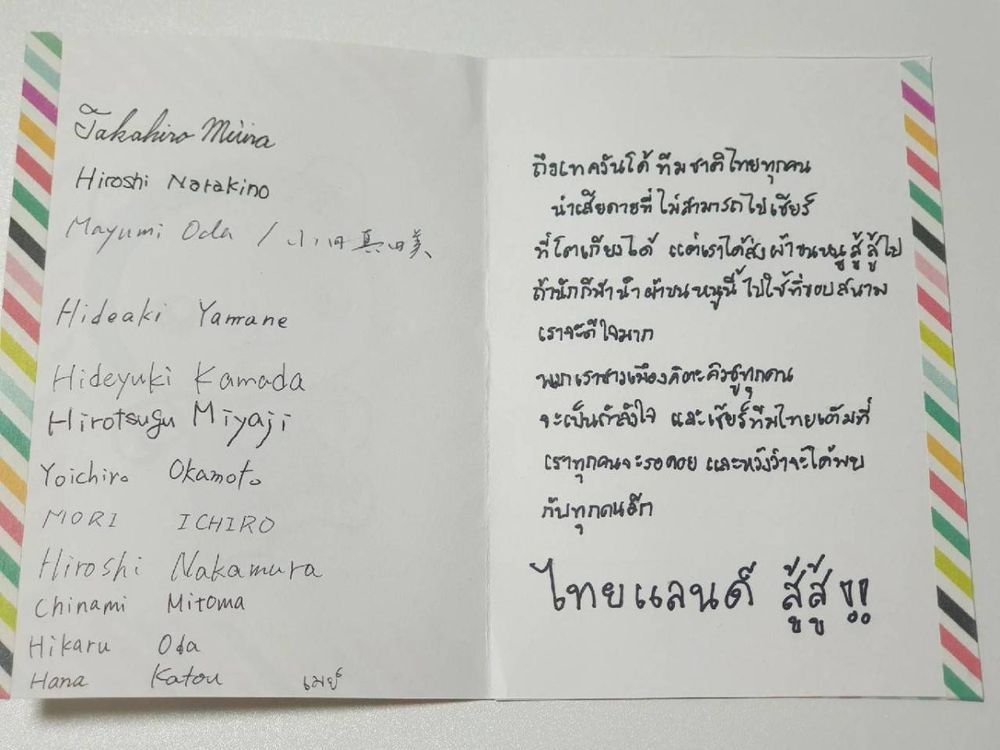 Takahiro Miura
Hiroshi Narakino
Mayumi Oda / 小田真由美
Hideaki Yamane
Hideyuki Kamada
Hirotsugu Miyaji
Yoichiro Okamoto
MORI ICHIRO
Hiroshi Nakamura
Chinami Mitoma
Hikaru Oda
Hana Katou เมย์
ถึงเทควันโด้ ทีมชาติไทยทุกคน
น่าเสียดายที่ไม่สามารถไปเชียร์
ที่โตเกียวได้ แต่เราได้ส่งผ้าขนหนูสู้สู้ไป
ถ้านักกีฬานำผ้าขนหนูนี้ไปใช้ที่ขอบสนาม
เราจะดีใจมาก
พวกเราชาวเมืองคิตะคิวชูทุกคน
จะเป็นกำลังใจ และเชียร์ทีมไทยเต็มที่
เราทุกคนจะรอคอย และหวังว่าจะได้พบ
กับทุกคนอีก
ไทยแลนด์ สู้สู้ !!